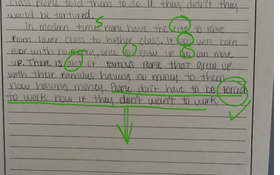 class people told them to do. If they didn't they
would be tortured.
S
In modern time people have the right to move
from lower class to higher class. If you were born
poor with no money, once you grow up you can move
up. There is alot of famous people that grew up
with their families having no money to them
now having money. People don't have to be forced
to work now if they don't want to work.